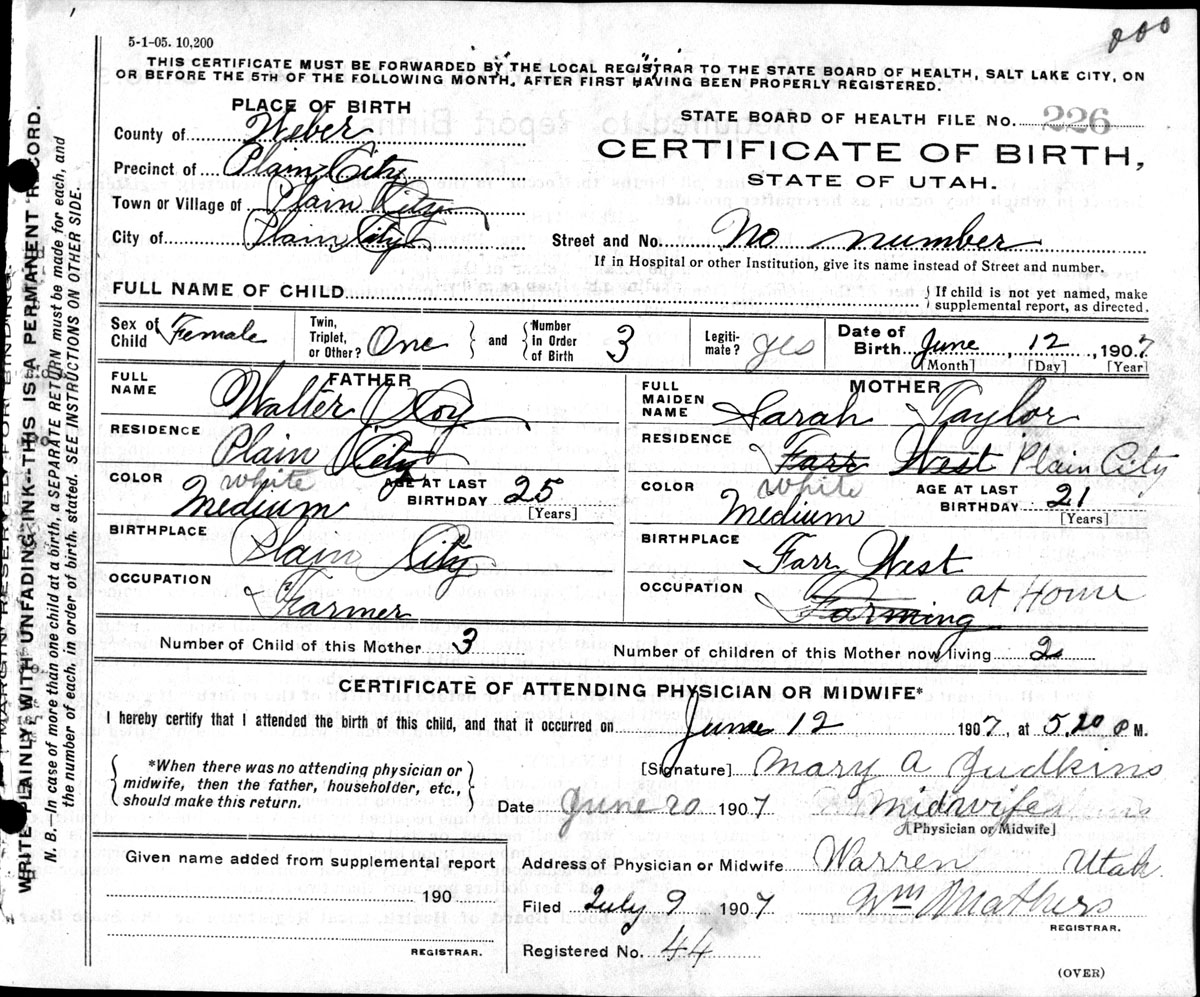 5-1-05. 10,200
THIS CERTIFICATE MUST BE FORWARDED BY THE LOCAL REGISTRAR TO THE STATE BOARD OF HEALTH, SALT LAKE CITY, ON
OR BEFORE THE 5TH OF THE FOLLOWING MONTH, AFTER FIRST HAVING BEEN PROPERLY REGISTERED.
PLACE OF BIRTH
County of Weber
Precinct of Plain City
Town or Village of Plain City
City of Plain City
STATE BOARD OF HEALTH FILE NO. 226
CERTIFICATE OF BIRTH,
STATE OF UTAH.
Street and No. No number
If in Hospital or other Institution, give its name instead of Street and number.
FULL NAME OF CHILD
{ If child is not yet named, make
supplemental report, as directed.
Sex of Child Female
Twin, Triplet, or Other? One } and { Number In Order of Birth 3
Legitimate? yes
Date of Birth June, 12, 1907
[Month] [Day] [Year]
FATHER
FULL NAME Walter
RESIDENCE Plain City
COLOR white Medium
AGE AT LAST BIRTHDAY 25
[Years]
BIRTHPLACE Plain City
OCCUPATION Farmer
MOTHER
FULL MAIDEN NAME Sarah Taylor
RESIDENCE Farr West Plain City
COLOR white Medium
AGE AT LAST BIRTHDAY 21
[Years]
BIRTHPLACE Farr West
OCCUPATION Farming at Home
Number of Child of this Mother 3
Number of children of this Mother now living 2
CERTIFICATE OF ATTENDING PHYSICIAN OR MIDWIFE*
I hereby certify that I attended the birth of this child, and that it occurred on June 12 1907, at 5.20 P M.
{ *When there was no attending physician or
midwife, then the father, householder, etc.,
should make this return. }
[Signature] Mary A Judkins
Date June 20 1907 Midwife
[Physician or Midwife]
Given name added from supplemental report
190
REGISTRAR.
Address of Physician or Midwife Warren Utah
Filed July 9 1907 Wm Mathers
REGISTRAR.
Registered No. 44
(OVER)
MARGIN RESERVED FOR BINDING
WRITE PLAINLY WITH UNFADING INK--THIS IS A PERMANENT RECORD.
N. B.—In case of more than one child at a birth, a SEPARATE RETURN must be made for each, and
the number of each, in order of birth, stated. SEE INSTRUCTIONS ON OTHER SIDE